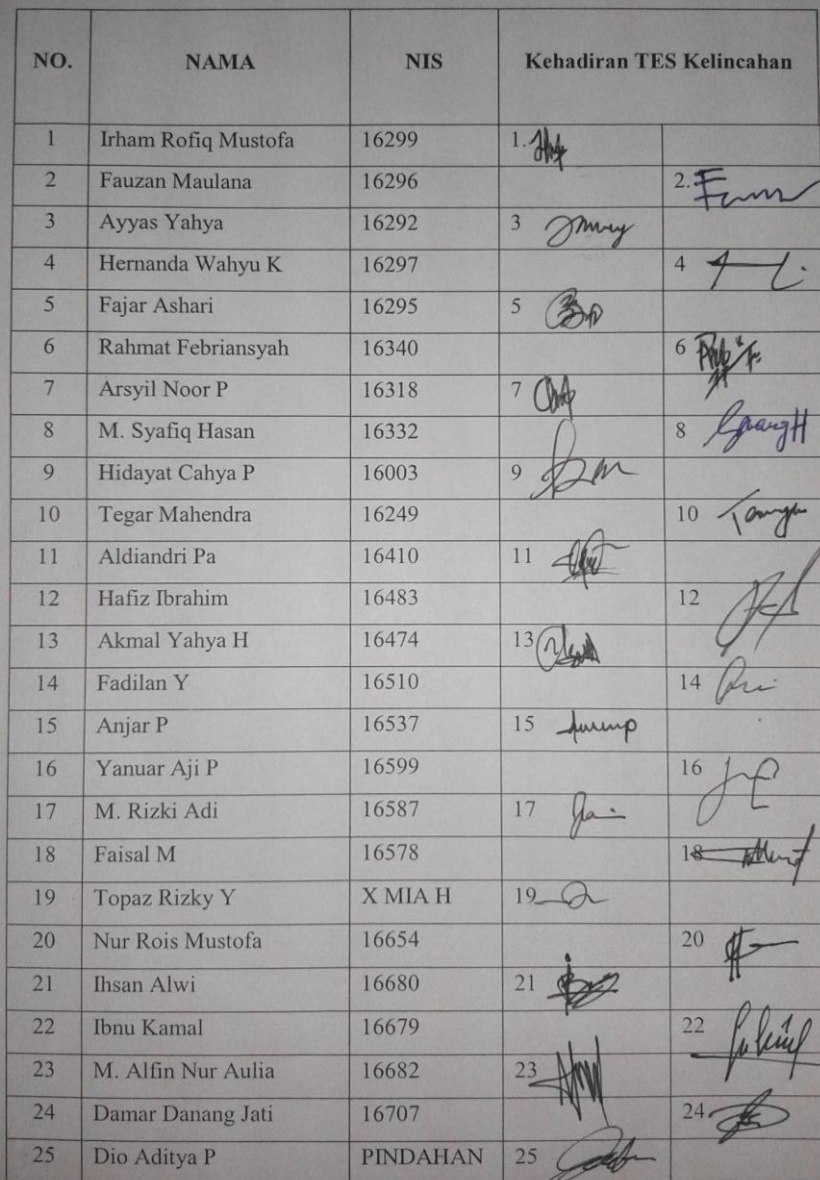 NO. NAMA NIS Kehadiran TES Kelincahan
1 Irham Rofiq Mustofa 16299 1.
2 Fauzan Maulana 16296 2.
3 Ayyas Yahya 16292 3
4 Hernanda Wahyu K 16297 4
5 Fajar Ashari 16295 5
6 Rahmat Febriansyah 16340 6
7 Arsyil Noor P 16318 7
8 M. Syafiq Hasan 16332 8
9 Hidayat Cahya P 16003 9
10 Tegar Mahendra 16249 10
11 Aldiandri Pa 16410 11
12 Hafiz Ibrahim 16483 12
13 Akmal Yahya H 16474 13
14 Fadilan Y 16510 14
15 Anjar P 16537 15
16 Yanuar Aji P 16599 16
17 M. Rizki Adi 16587 17
18 Faisal M 16578 18
19 Topaz Rizky Y X MIA H 19
20 Nur Rois Mustofa 16654 20
21 Ihsan Alwi 16680 21
22 Ibnu Kamal 16679 22
23 M. Alfin Nur Aulia 16682 23
24 Damar Danang Jati 16707 24
25 Dio Aditya P PINDAHAN 25